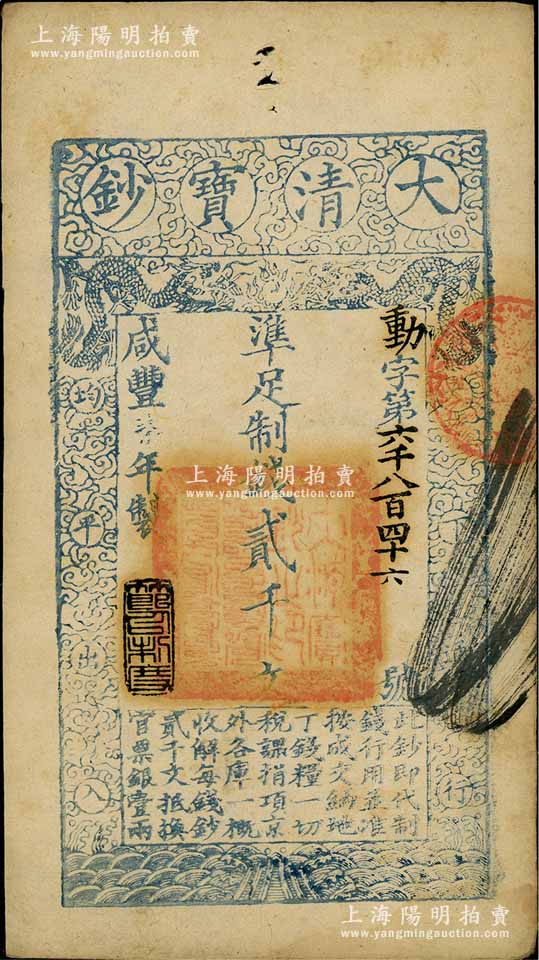 上海陽明拍賣
www.yangmingauction.com
大清寶鈔
動字第六千八百四十六號
準足制錢貳千文
咸豐柒年製
上海陽明拍賣
www.yangmingauction.com
均平出入
行
此鈔即代制
錢行用並准
按成交納地
丁錢糧一切
稅課捐項京
外各庫一概
收解每錢鈔
貳千文抵換
官票銀壹兩
上海陽明拍賣
www.yangmingauction.com